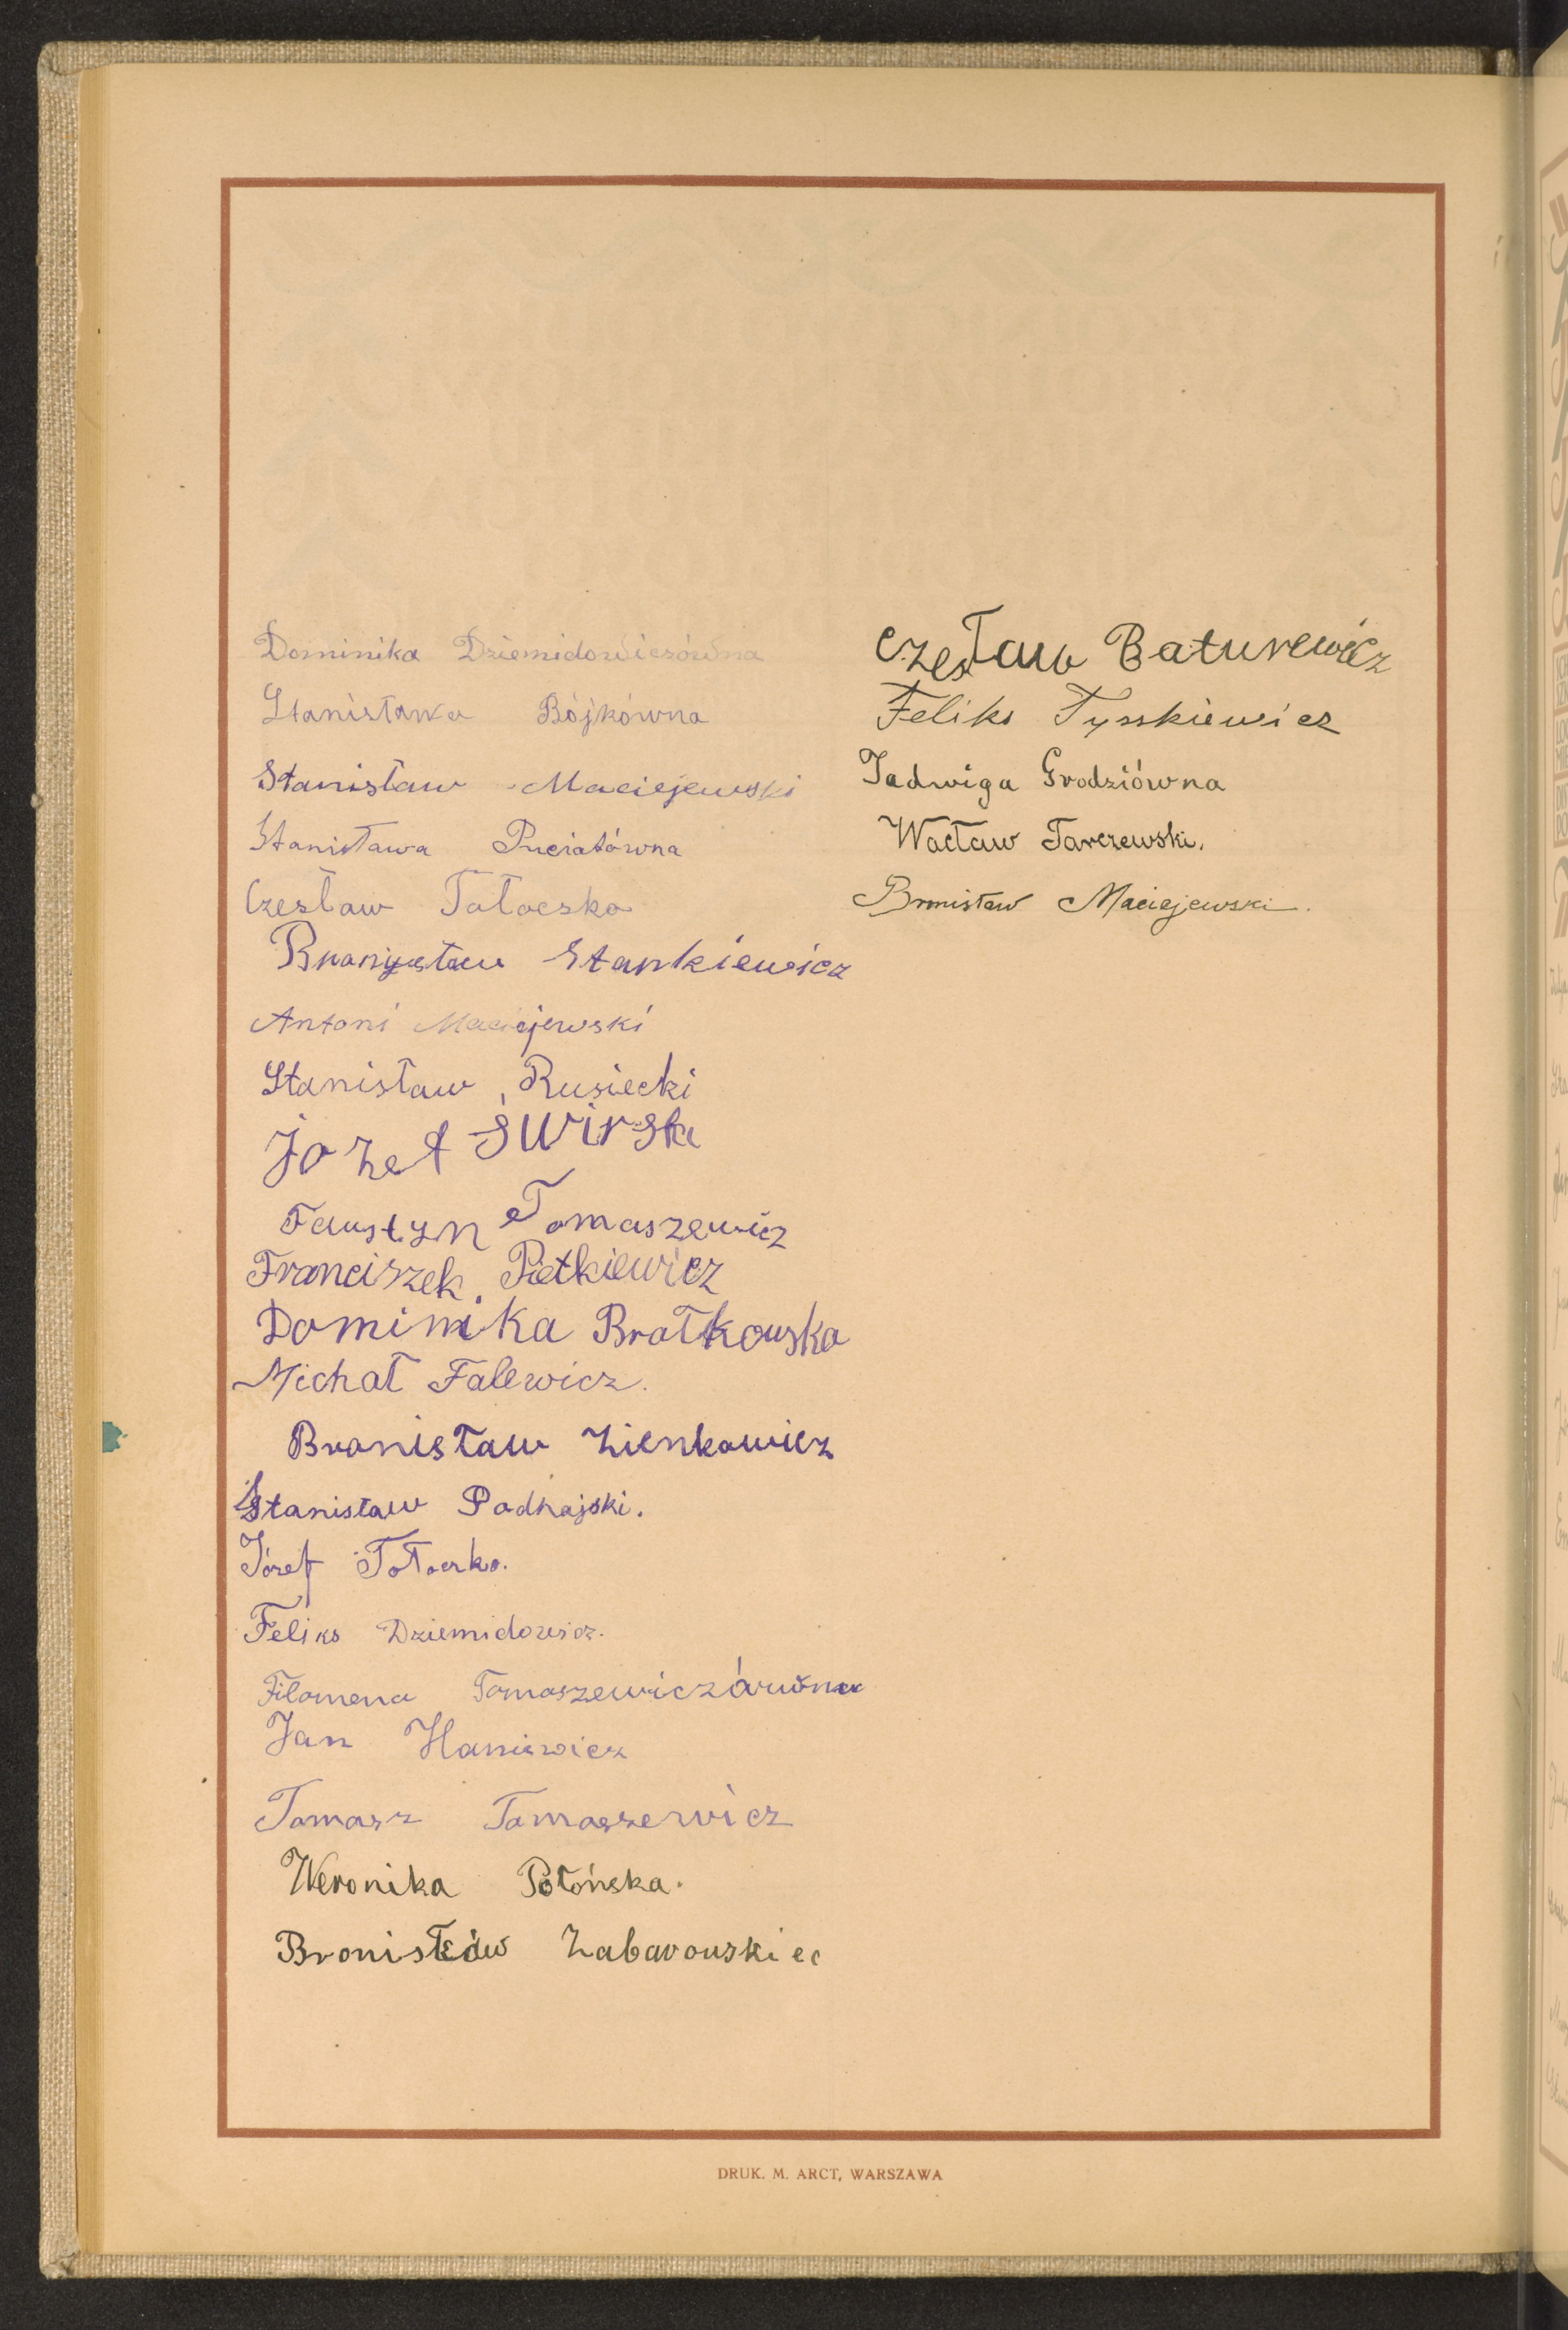 Dominika Dziemidowiczówna
Stanisława Bójkówna
Stanisław Maciejewski
Stanisława Puciatówna
Czesław Tołoczko
Bronisław Stankiewicz
Antoni Maciejewski
Stanisław Rusiecki
Jozef Swirski
Faustyn Tomaszewicz
Franciszek Pietkiewicz
Dominika Bratkowska
Michał Falewicz.
Bronisław Zienkowicz
Stanisław Podhajski.
Józef Tołoczko.
Feliks Dziemidowicz.
Filomena Tomaszewiczówna
Jan Haniewicz
Tomasz Tomaszewicz
Weronika Połońska.
Bronisław
Czesław Baturewicz
Feliks Tysskiewicz
Jadwiga Grodziówna
Wacław Tarczewski.
Bronisław Maciejewski.
DRUK. M. ARCT, WARSZAWA